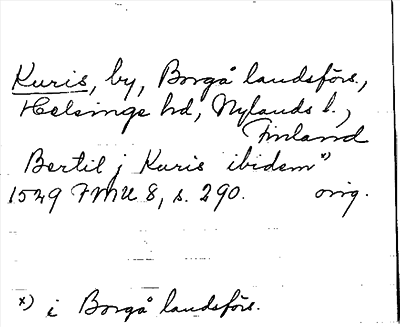 Kuris, by, Borgå landsförs.,
Helsinge hd, Nylands l.,
Finland
Bertil j Kuris ibidem x)
1549 FMU 8, s. 290. orig.
x) i Borgå landsförs.